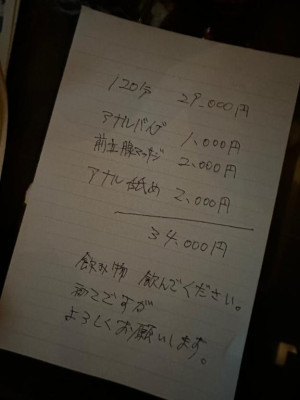 120分 29.000円
アナルバイブ 1.000円
前立腺マッサージ 2.000円
アナル舐め 2.000円
34.000円
飲み物 飲んでください。
初てですが
よろしくお願いします。